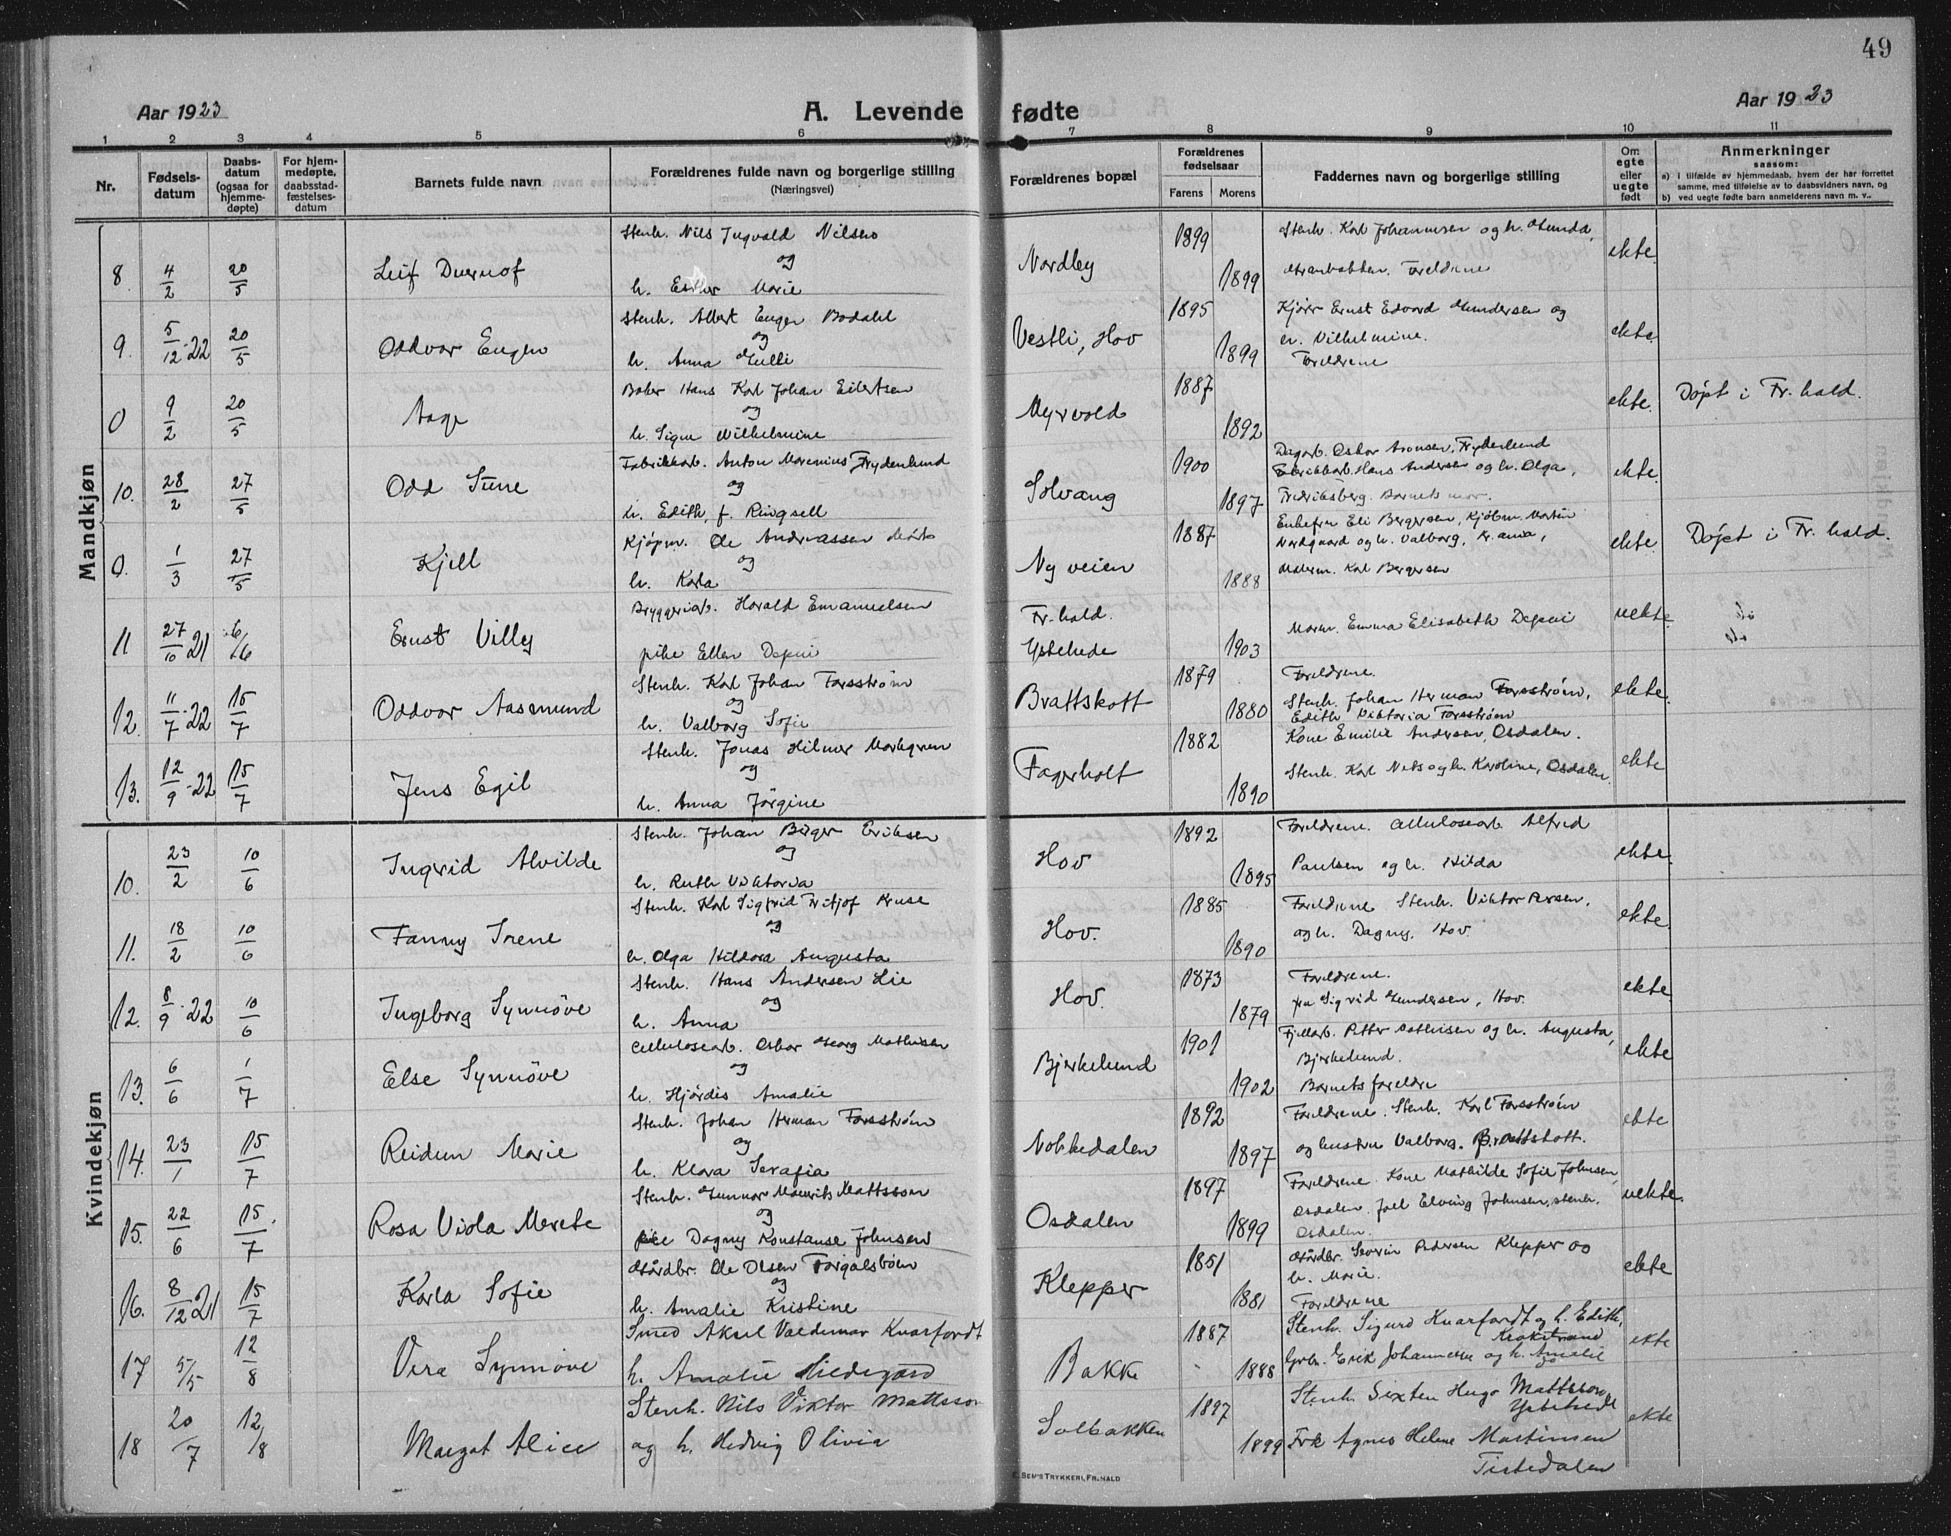 49
Aar 1923
A. Levende fødte
Aar 1923
1 2 3 4 5 6 7 8 9 10 11
Nr.
Fødsels-
datum
Daabs-
datum
(ogsaa for
hjemme-
døpte)
For hjem-
medøpte,
daabsstad-
fæstelses-
datum
Barnets fulde navn
Forældrenes fulde navn og borgerlige stilling
(Næringsvei)
Forældrenes bopæl
Forældrenes
fødselsaar
Farens Morens
Faddernes navn og borgerlige stilling
Om
egte
eller
uegte
født
Anmerkninger
saasom:
a) i tilfælde av hjemmedaab, hvem der har forrettet
samme, med tilføielse av to daabsvidners navn, og
b) ved uegte fødte barn anmelderens navn m. v..
Mandkjøn
8 4/2 20/5 Leif
Stenh. Nils Ingvald Nilsen
og
h. Marie
Nordley 1899 1899
Stenh. Karl Johannesen og h.
Foreldrene
ekte.
9. 5/12-22 20/5 Oddvar Eugen
Stenh. Albert Eugen Bodahl
og
h. Anna
Vestli, Hov 1895 1899
Kjører Ernst Edvard Gundersen og
Vilhelmine.
Foreldrene
ekte.
0 9/2 20/5 Aage
Baker Hans Karl Johan Eilertsen
og
h. Signe Wilhelmine
Myrvold 1887 1892
ekte. Døpt i Fr. hald.
10. 28/2 27/5 Odd Sune
Fabrikkarb. Anton Marenius Frydenlund
og
h. Edith, f. Ringsell
Solvang 1900 1897
Dagarb. Oskar Aronsen, Frydenlund
Fabrikkarb. Hans Andersen og h. Olga,
Fredriksberg. Barnets mor.
ekte.
0. 1/3 27/5 Kjell
Kjøpm. Ole Andreassen
og
h. Karla
Ny veien 1887 1888
Enkefru Eli Bergersen, Kjøbm. Martin
Nordgaard og h. Valborg,
Karl Bergersen
ekte. Døpt i Fr. hald.
11 27/10 21 6/6 Ernst Villy
Bryggeriarb. Harald Emanuelsen
pike Ellen
Fr. hald.
Ystehede 1903
Emma Elisabeth
uekte.
12. 11/7-22 15/7 Oddvar Aasmund
Stenh. Karl Johan Forsstrøm
og
h. Valborg Sofie
Brattskott 1879 1880
Foreldrene.
Stenh. Johan Herman Forsstrøm,
Edith Viktoria Forsstrøm
ekte.
13. 12/9-22 15/7 Jens Egil
Stenh. Jonas Hilmer Markgren
og
h. Anna Jørgine
Fagerholt 1882 1890
Kone Emilie Andersen, Osdalen.
Stenh. Karl Nils og h. Karoline, Osdalen
ekte
Kvindekjøn
10. 23/2 10/6 Ingrid Alvilde
Stenh. Johan Birger Eriksen
og
h. Ruth Viktoria
Hov 1892 1895
Foreldrene. Cellulosearb. Alfred
Paulsen og h. Hilda
ekte.
11. 18/2 10/6 Fanny Irene
Stenh. Karl Sigfrid Fritjof Kruse
og
h. Olga Hildora Augusta
Hov. 1885 1890
Foreldrene Stenh. Viktor
og h. Dagny, Hov.
ekte.
12. 8/9-22 10/6 Ingeborg Synnöve
Stenh. Hans Andersen Lie
og
h. Anna
Hov. 1873 1879
Foreldrene.
Sigrid Gundersen, Hov.
ekte.
13. 6/6 1/7 Else Synnöve
Cellulosearb. Oskar Georg Mathisen
og
h. Hjördis Amalie
Bjerkelund 1901 1902
Petter Mathisen og h. Augusta,
Bjerkelund.
Barnets foreldre
ekte
14. 23/1 15/7 Reidun Marie
Stenh. Johan Herman Forsstrøm
og
h. Klara Serafia
Nokkedalen 1892 1897
Foreldrene. Stenh. Karl Forsstrøm
og hustru Valborg. Brattskott.
ekte
15. 22/6 15/7 Rosa Viola Merete
Stenh. Gunnar Mauritz Mattsson
og
pike Dagny Konstanse Johnsen
Osdalen 1897 1899
Foreldrene. Kone Mathilde Sofie Johnsen,
Osdalen. Joel Elving Johnsen, stenh.
Osdalen.
uekte.
16. 8/12-21 15/7 Karla Sofie
Gårdbr. Ole Olsen Torgalsbøen
og
h. Amalie Kristine
Klepper 1851 1881
Gårdbr. Severin Pedersen Klepper og
h. Marie.
Foreldrene
ekte
17 5/5 12/8 Vera Synnöve
Smed Aksel Valdemar Kvarfordt
h. Amalie Hildegard
Bakke 1887 1888
Stenh. Sigurd Kvarfordt og h. Edith,
Krokstrand
Grbr. Erik Johannesen og h. Amalie
ekte
18 20/7 12/8 Margot Alice
Stenh. Nils Viktor Mattsson
og h. Hedvig Olivia
Solbakken 1897 1899
Stenh. Sixten Hugo Mattsson
Ystehede
Frk Agnes Helene Martinsen
Tistedalen
ekte
E. SEM'S TRYKKERI, FR.HALD